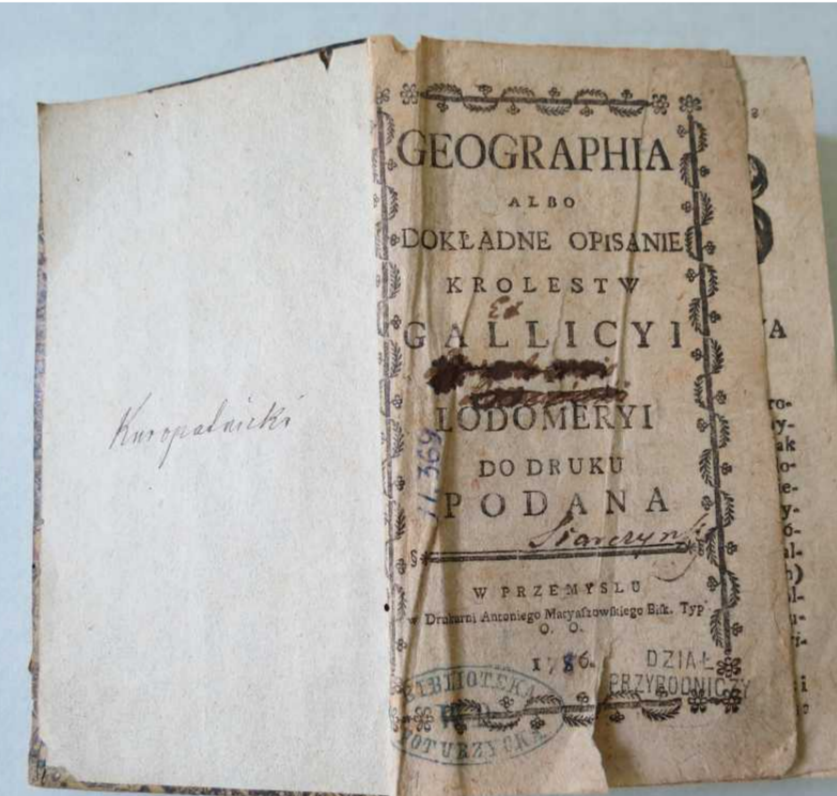 Kuropatnicki
GEOGRAPHIA
ALBO
DOKŁADNE OPISANIE
KROLESTW
GALLICYI
LODOMERYI
DO DRUKU
PODANA
Siarczyń
W PRZEMYSLU
w Drukarni Antoniego Matyaszowskiego Bisk. Typ
O. O.
1786.
DZIAŁ
PRZYRODNICZY
BIBLIOTEKA
POTURZYCKA
11369